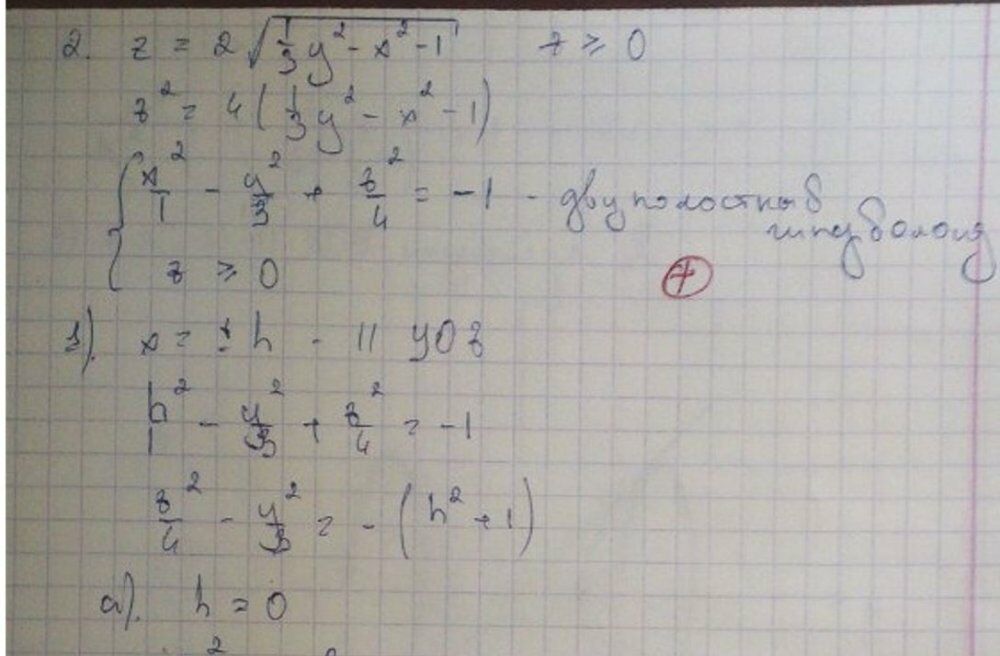 2. z = 2 √(1/3 y² - x² - 1)    z ≥ 0
z² = 4 (1/3 y² - x² - 1)
{ x²/1 - y²/3 + z²/4 = -1 - двуполостный гиперболоид
z ≥ 0    +
1). x = ± h - || yOz
h²/1 - y²/3 + z²/4 = -1
z²/4 - y²/3 = - (h² + 1)
а). h = 0